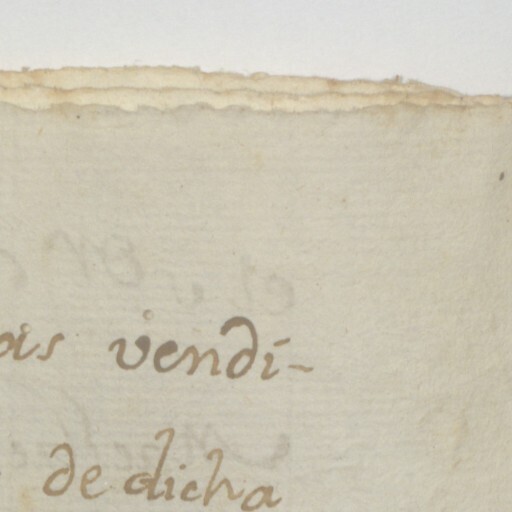 vendi-
de dicha